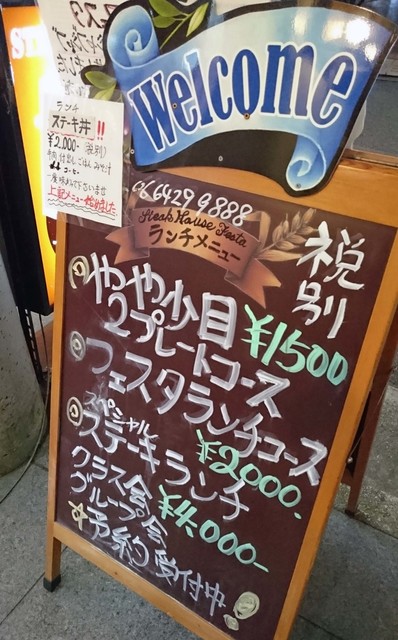 Welcome
ランチ
ステーキ丼!!
¥2,000-(税別)
上記メニュー始めました
06 6429 9888
Steak House Festa
ランチメニュー
税別
◎やや少目
2プレートコース
¥1500
◎フェスタランチコース
¥2000-
◎スペシャル
ステーキランチ
¥4000-
クラス会
グループ会
★予約受付中!